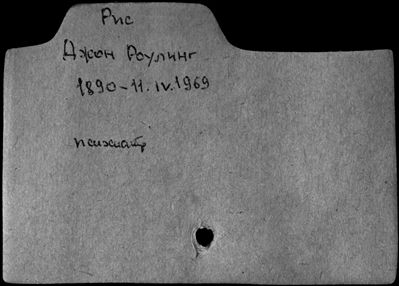 Рис
Джон Роулинг
1890-11.IV.1969
психиатр